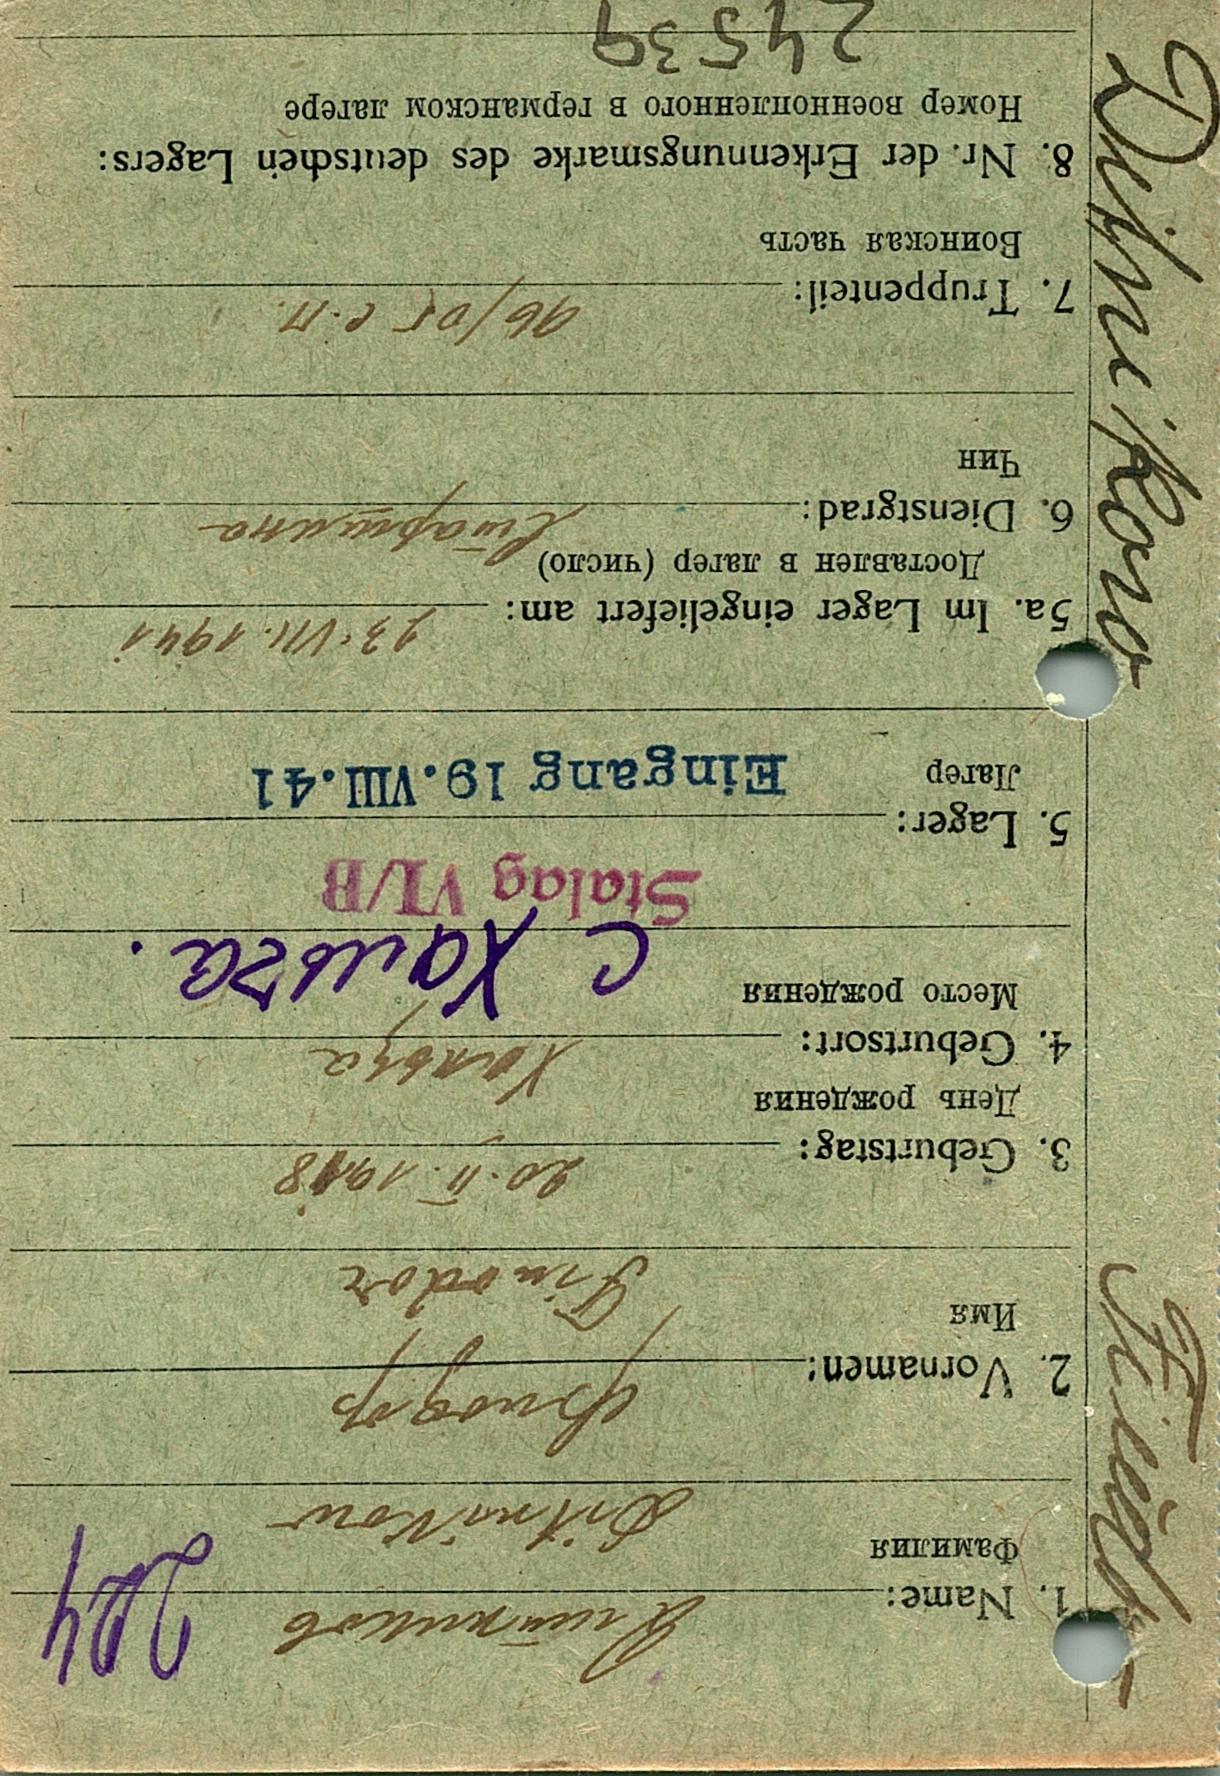 224
1. Name: Литников
Фамилия
Litnikow
2. Vornamen: Фиодор
Имя
Fiodor
3. Geburtstag: 20.II.1918
День рождения
4. Geburtsort: Хальза
Место рождения
с Хальза.
Stalag VI/B
5. Lager:
Лагер
Eingang 19.VIII.41
5a. Im Lager eingeliefert am: 23.VII.1941
Доставлен в лагер (число)
6. Dienstgrad: Старшина
Чин
7. Truppenteil: 96/05 с.п.
Воинская часть
8. Nr. der Erkennungsmarke des deutschen Lagers:
Номер военнопленного в германском лагере
24539